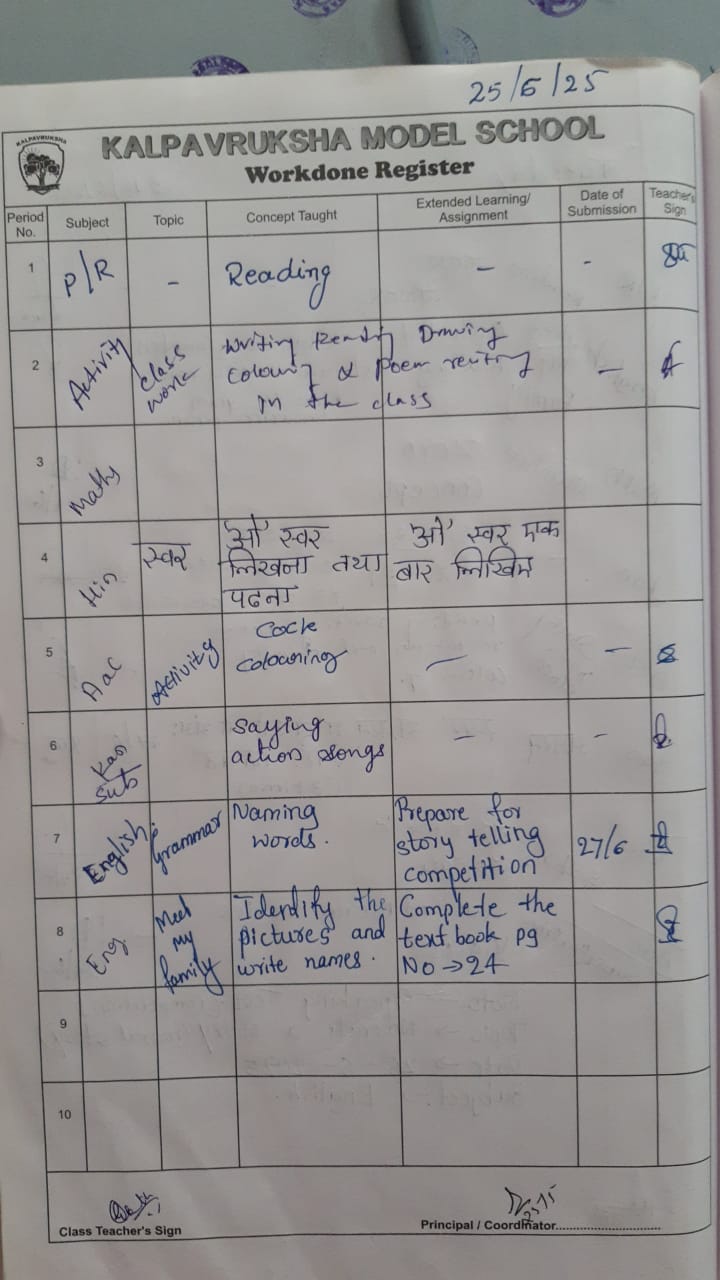 25/6/25
KALPAVRUKSHA
KALPAVRUKSHA MODEL SCHOOL
Workdone Register
Period No. Subject Topic Concept Taught Extended Learning/ Assignment Date of Submission Teacher's Sign
1 P/R - Reading - -
2 Activity class work Writing Reading Drawing
colouring & poem reciting
in the class -
3 Maths
4 Hin स्वर 'ओ' स्वर 'ओ' स्वर एक
लिखना तथा बार लिखिए
पढना
5 Aac Activity Cock
colouring - -
6 Kan Sub saying
action songs - -
7 English Grammar Naming Prepare for
words. story telling 27/6
competition
8 Eng Meet my family Identify the Complete the
pictures and text book pg
write names. No → 24
9
10
Class Teacher's Sign Principal / Coordinator